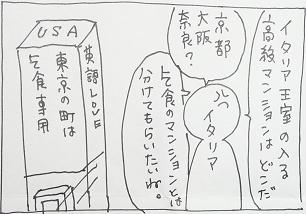 イタリア王室の入る
高級マンションはどこだ
京都
大阪
奈良?
イタリア
乞食のマンションとは
分けてもらいたいね。
USA
英語LOVE
東京の町は
乞食専用